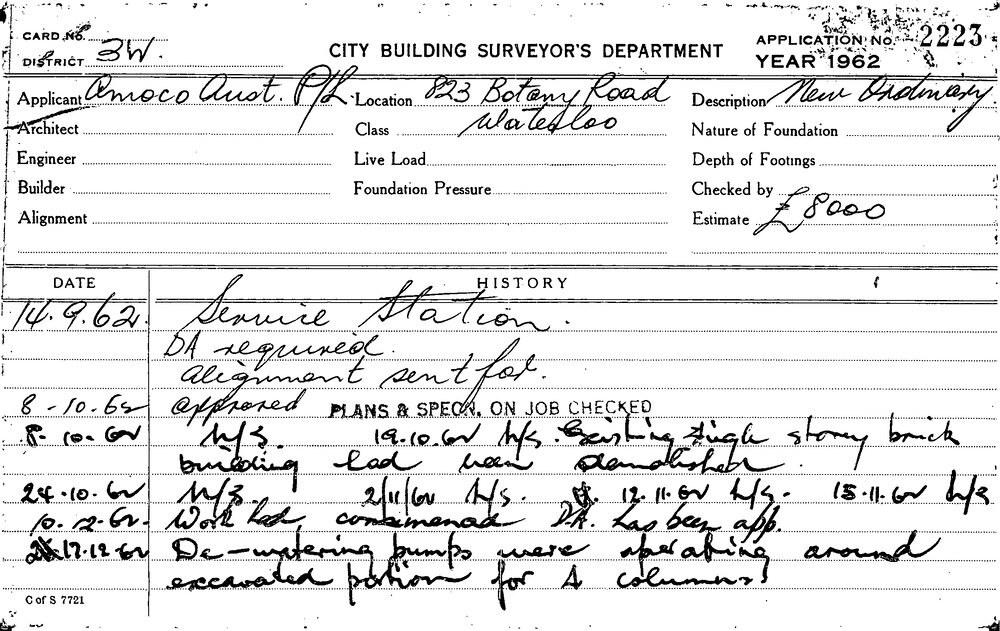 CARD No.
DISTRICT 3W.
CITY BUILDING SURVEYOR'S DEPARTMENT
APPLICATION No. 2223
YEAR 1962
Applicant Amoco Aust. P/L Location 823 Botany Road Description New Ordinary
Architect Class Waterloo Nature of Foundation
Engineer Live Load Depth of Footings
Builder Foundation Pressure Checked by
Alignment Estimate £8000
DATE HISTORY
14.9.62. Service Station.
DA required.
Alignment sent for.
8-10-62 approved PLANS & SPECN. ON JOB CHECKED
8-10-62 N/S. 19.10.62 N/S. Existing single storey brick
building had been demolished.
24.10.62 N/S. 2/11/62 N/S. 12.11.62 N/S. 15.11.62 N/S
10.12.62. Work had commenced DA. has been app.
17.12.62 De-watering pumps were operating around
excavated portion for 4 columns.
C of S 7721